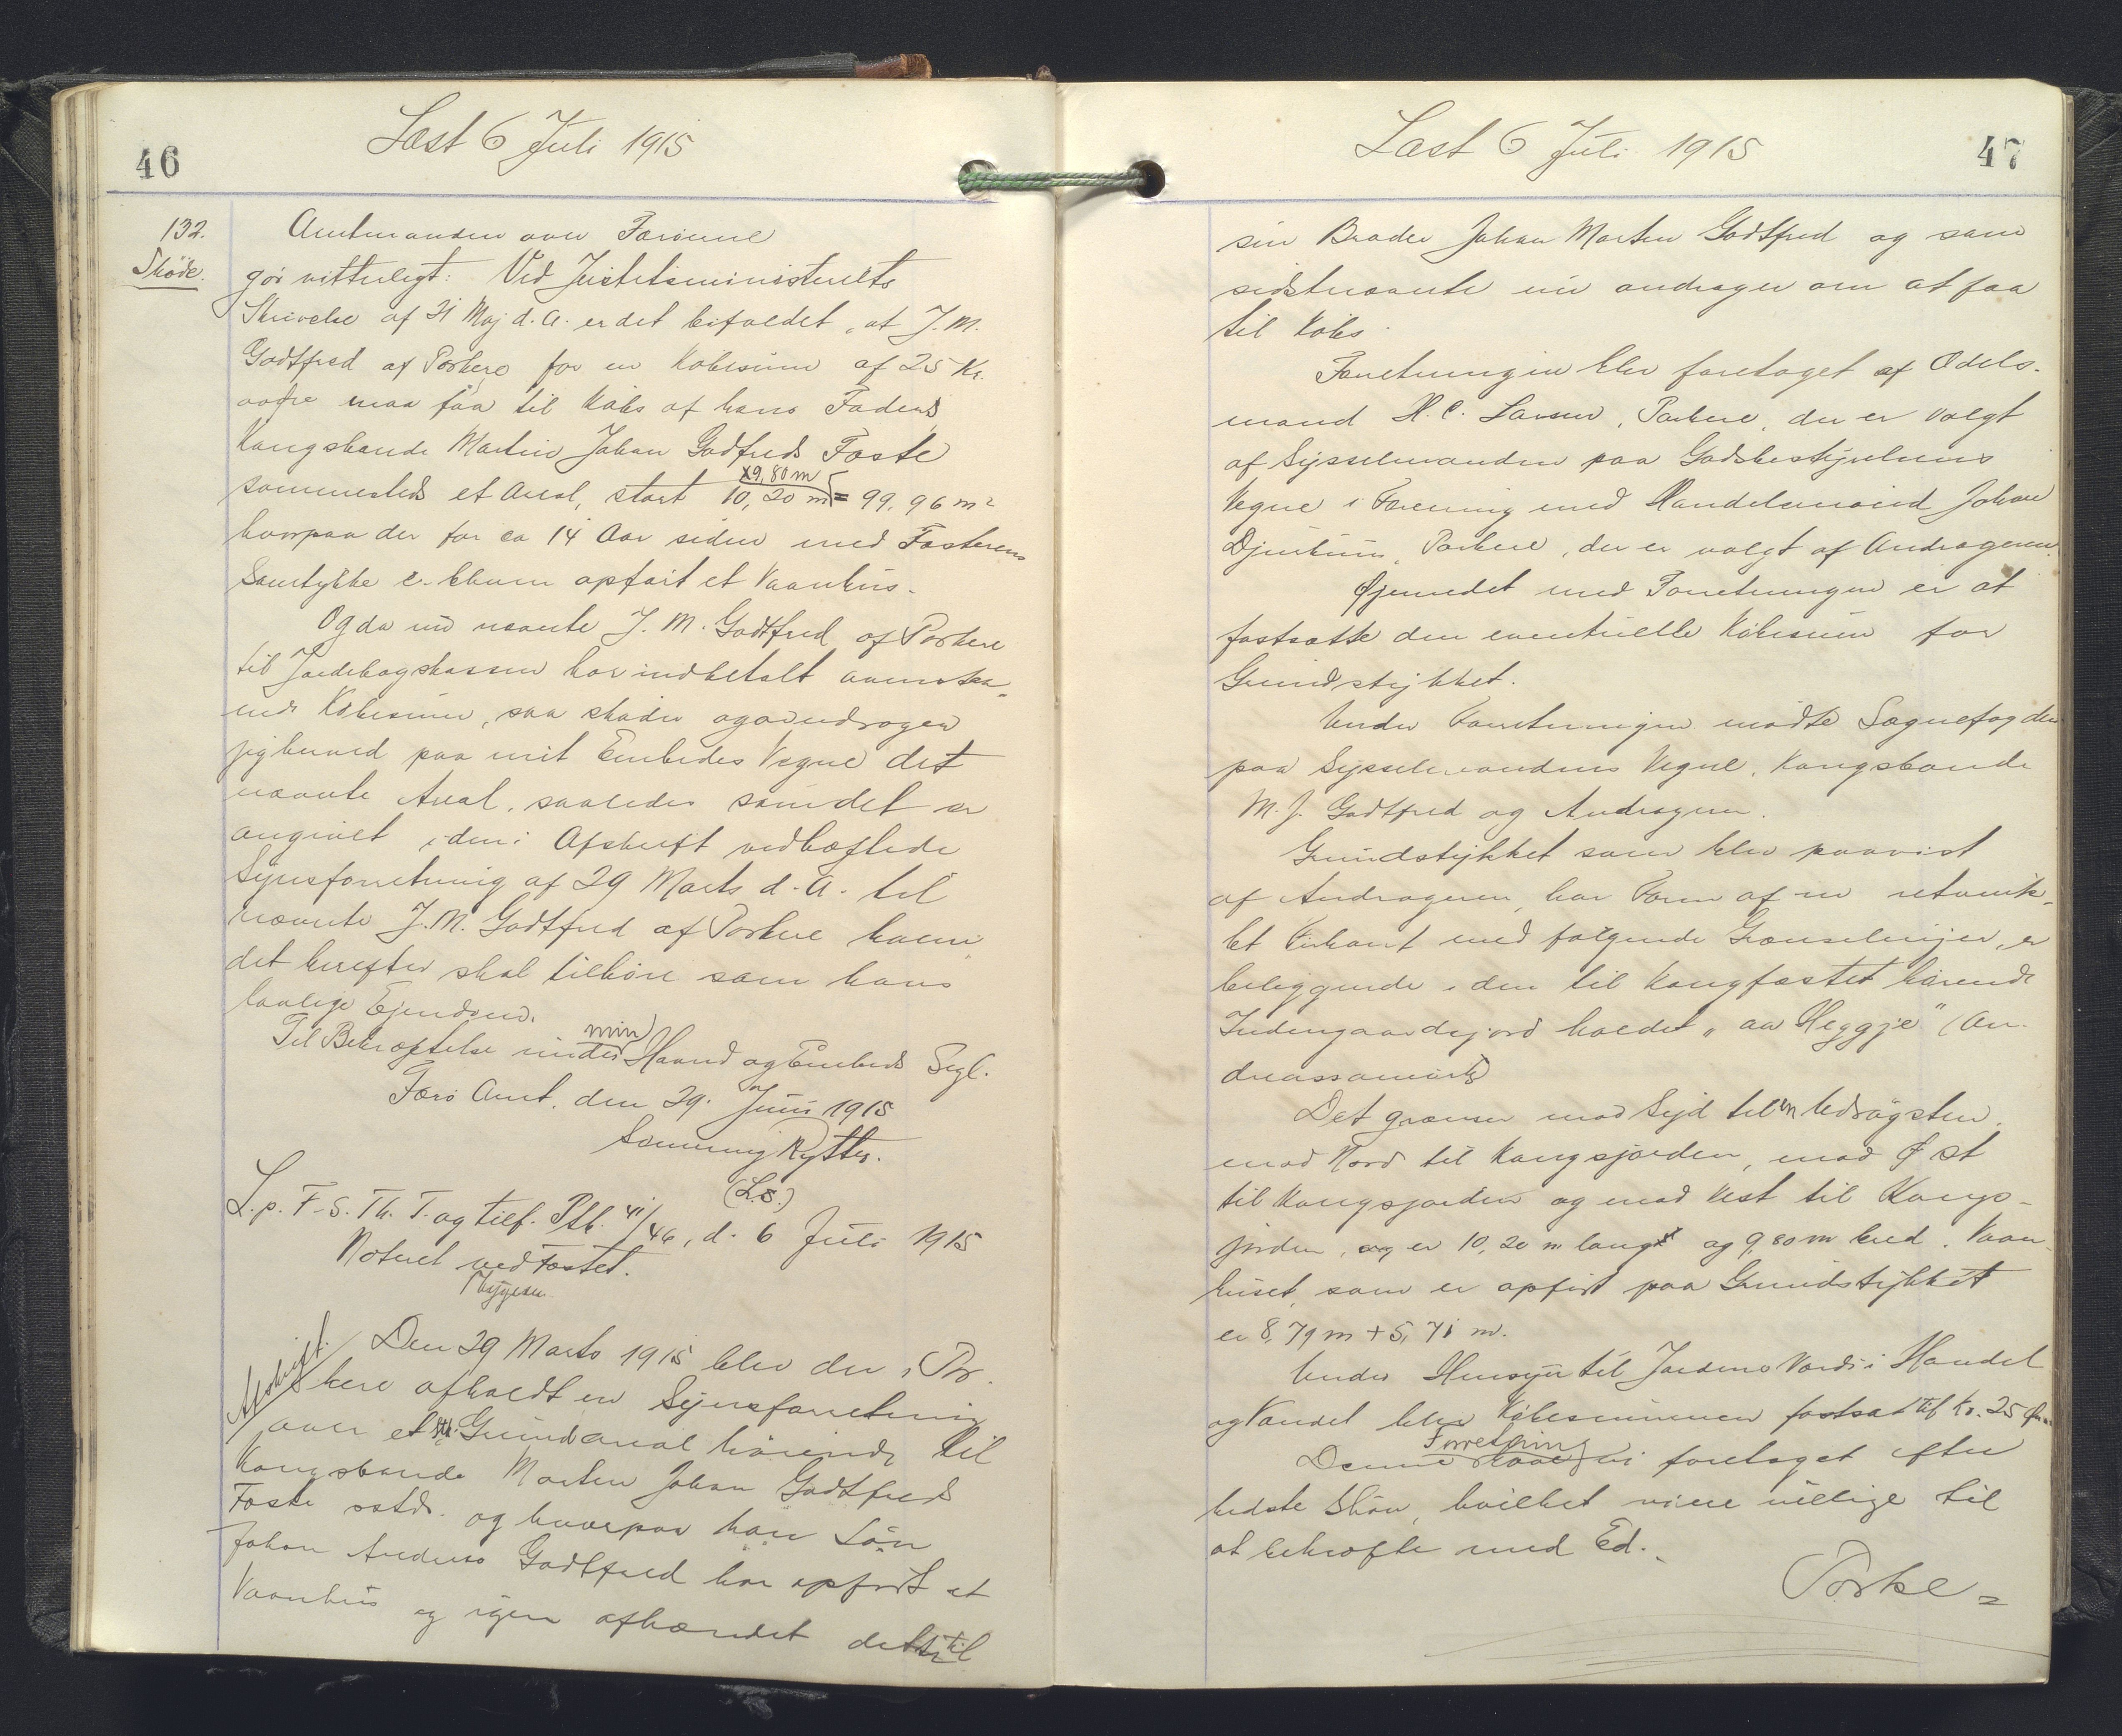 46
Læst 6 Juli 1915
132.
Skøde.
Amtmanden over Færöerne
gör vitterligt: Ved Justitsministeriets
Skrivelse af 21 Maj d. A. er det bifaldet, at J. M.
Godtfred af Porkere for en Købesum af 25 Kr.
maa faa til Købs af hans Faders
Kongsbonde Martin Johan Godtfreds Fæste
sammesteds et Areal, stort 10,20 m x 9,80 m = 99,96 m²
hvorpaa der for ca 14 Aar siden med Fæsterens
Samtykke e. blevem opført et Vaanhus.
Og da nu nævnte J. M. Godtfred af Porkere
til Jordebogskassen har indbetalt ovenstaa-
ende Købesum, saa skøder og overdrager
jeg herved paa mit Embedes Vegne det
nævnte Areal, saaledes som det er
angivet i den i Afskrift vedhæftede
Synsforretning af 29 Marts d. A. til
nævnte J. M. Godtfred af Porkere hvem
det herefter skal tilhöre som hans
lovlige Ejendom.
Til Bekræftelse under min Haand og Embeds Segl.
Færö Amt, den 29. Juni 1915
Svenning Rytter.
(L.S.)
L. p. F. S. Th. T. og tilf. Ptk. 41/46, d. 6 Juli 1915
Noteret ved Fæstet.
Afskrift.
Den 29 Marts 1915 blev der i Por-
kere afholdt en Synsforretning
over et Grundareal hörende til
Kongsbonde Morten Johan Godtfreds
Fæste sstds. og hvorpaa hans Sön
Johan Andreas Godtfred har opført et
Vaanhus og igen afhændet dette til
47
Læst 6 Juli 1915
sin Broder Johan Morten Godtfred og som
sidstnævnte nu andrager om at faa
til Købs.
Forretningen blev foretaget af Odels-
mand H. C. Larsen, Porkere, der er valgt
af Sysselmanden paa Godsbestyrelsens
Vegne i Forening med Handelsmand Johan
Djurhuus, Porkere, der er valgt af Andrageren.
Øjemedet med Forretningen er at
fastsætte den eventuelle Købesum for
Grundstykket.
Under Forretningen mødte Sognefogden
paa Sysselmandens Vegne, Kongsbonde
M. J. Godtfred og Andrageren.
Grundstykket som blev paavist
af Andrageren, har Form af en retvink-
let Firkant med følgende Grænselinjer, er
beliggende i den til Kongsfæstet hörende
Indengaardsjord kaldet „aa Heggje" (An-
dreassamörk)
Det grænser mod Syd til en Udröjsten,
mod Nord til Kongsjorden, mod Øst
til Kongsjorden og mod Vest til Kongs-
jorden, og er 10,20 m lang og 9,80 m bred. Vaan-
huset, som er opført paa Grundstykket
er 8,79 m + 5,71 m.
Under Hensyn til Jordens Værdi i Handel
og Vandel blev Købesummen fastsat til Kr. 25 Øre
Denne Forretning have vi foretaget efter
bedste Skøn, hvilket vi ere villige til
at bekræfte med Ed.
Porke=